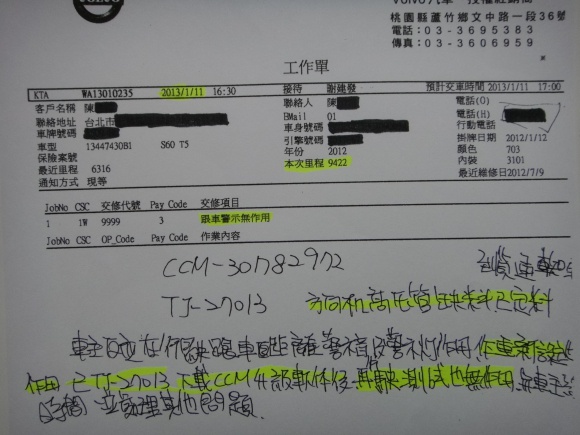 VOLVO
Volvo汽車 授權經銷商
桃園縣蘆竹鄉文中路一段36號
電話:03-3695383
傳真:03-3606959
工作單
KTA WA13010235 2013/1/11 16:30 接待 謝建發 預計交車時間 2013/1/11 17:00
客戶名稱 陳 聯絡人 陳 電話(O)
聯絡地址 台北市 BMail 01 電話(H)
車牌號碼 車身號碼 行動電話
車型 13447430B1 S60 T5 引擎號碼 掛牌日期 2012/1/12
保險案號 年份 2012 顏色 703
最近里程 6316 本次里程 9422 內裝 3101
通知方式 現等 最近維修日2012/7/9
JobNo CSC 交修代號 Pay Code 交修項目
1 1W 9999 3 跟車警示無作用
JobNo CSC OP_Code Pay Code 作業內容
CCM-30782972
TJ-27013 方向机高压管缺料已定料
車主反应在行駛跟車距離警示
作用 已TJ-27013下載CCM升級軟体後 測試也無作用
時間 並處理其他問題.